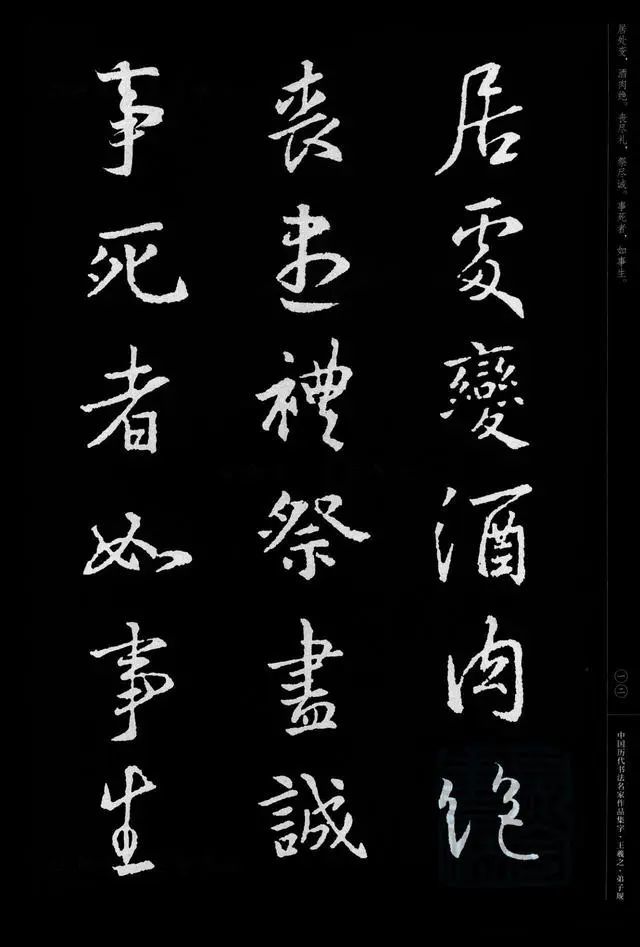 居处变，酒肉绝。丧尽礼，祭尽诚。事死者，如事生。
居處變酒肉絕
喪盡禮祭盡誠
事死者如事生
一二
中国历代书法名家作品集字·王羲之·弟子规